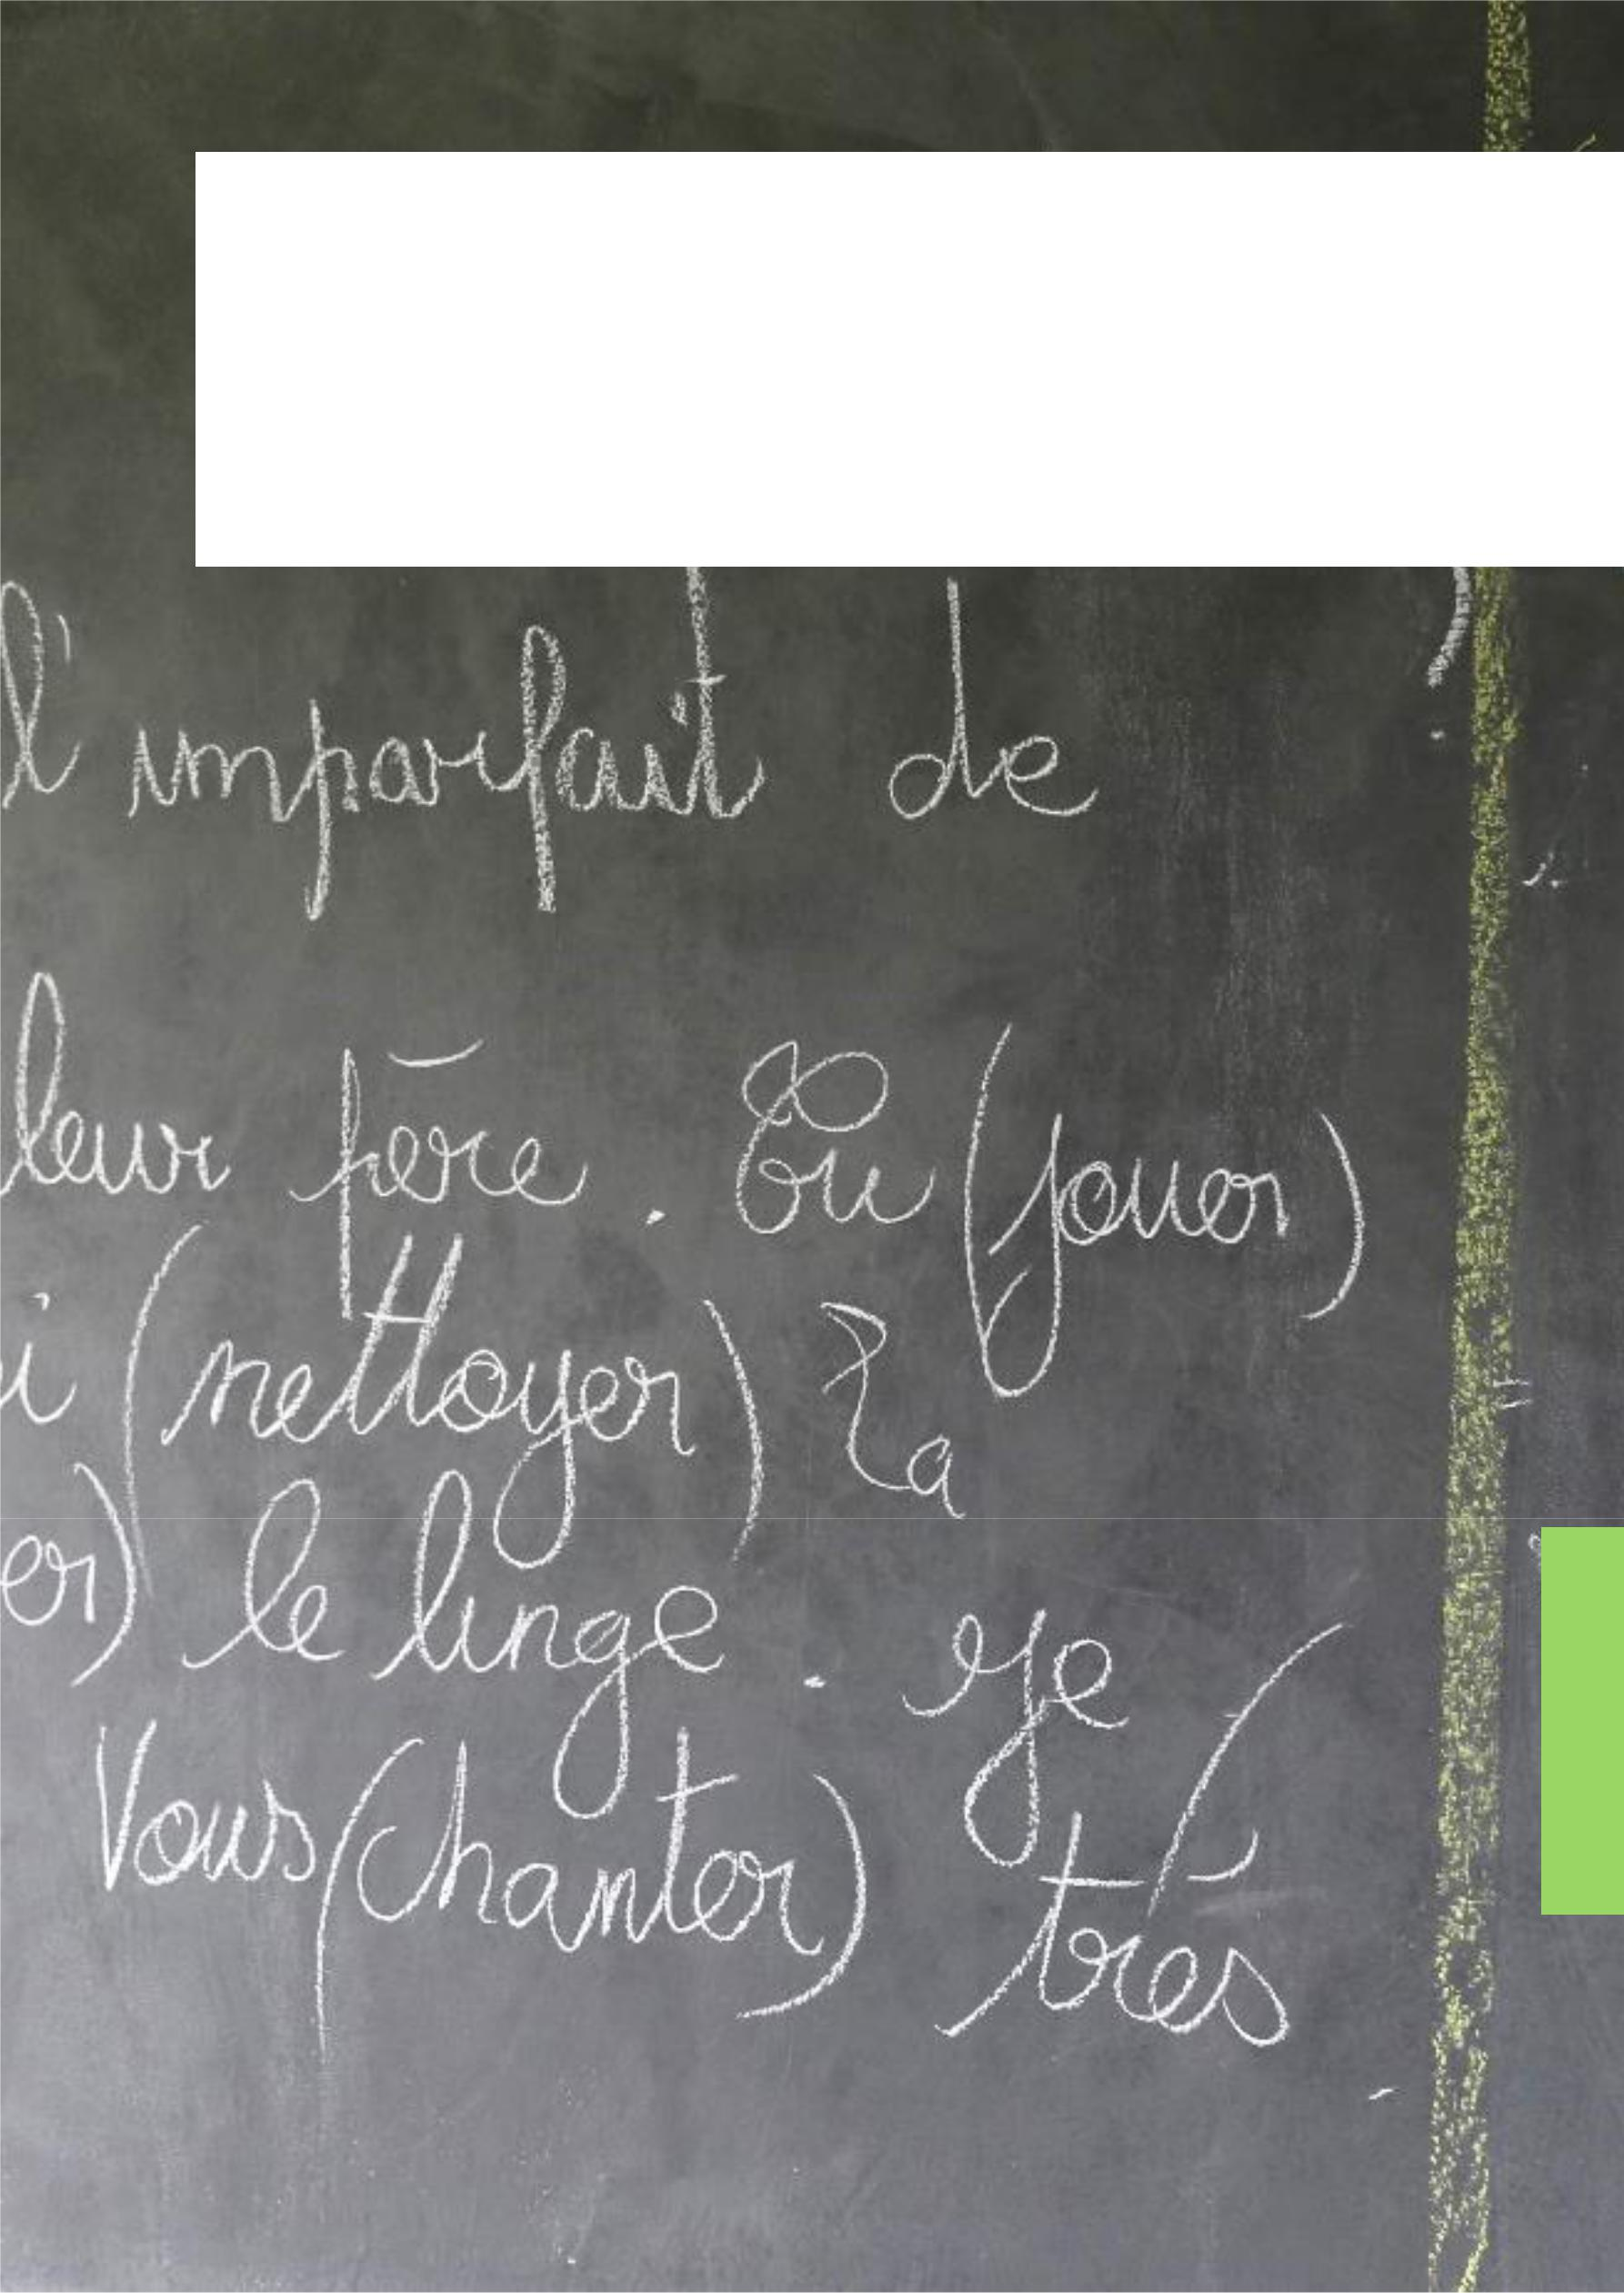 l'imparfait de
leur père. Tu (jouer)
i (nettoyer) La
er) le linge. Je (
Vous (chanter) très